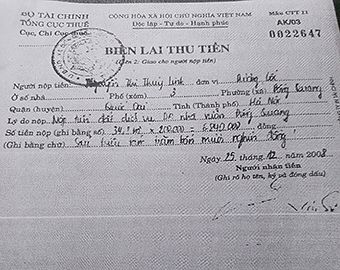 BỘ TÀI CHÍNH
TỔNG CỤC THUẾ
Cục, Chi Cục Thuế
CỘNG HÒA XÃ HỘI CHỦ NGHĨA VIỆT NAM
Độc lập - Tự do - Hạnh phúc
Mẫu CTT 11
AK/03
0022647
BIÊN LAI THU TIỀN
(Liên 2: Giao cho người nộp tiền)
Người nộp tiền: Nguyễn Thị Thuỳ Linh đơn vị
Ở số nhà Phố (xóm) 3 Phường (xã)
Quận (huyện) Tỉnh (Thành phố) Hà Nội
Lý do nộp: Nộp tiền đất dịch vụ
Số tiền nộp (ghi bằng số) 34,2 m² x 200.000 = 6.840.000 đồng
(Ghi bằng chữ) Sáu triệu tám trăm bốn mươi nghìn đồng
Ngày 25 tháng 12 năm 2008
Người nhận tiền
(Ghi rõ họ tên, ký và đóng dấu)